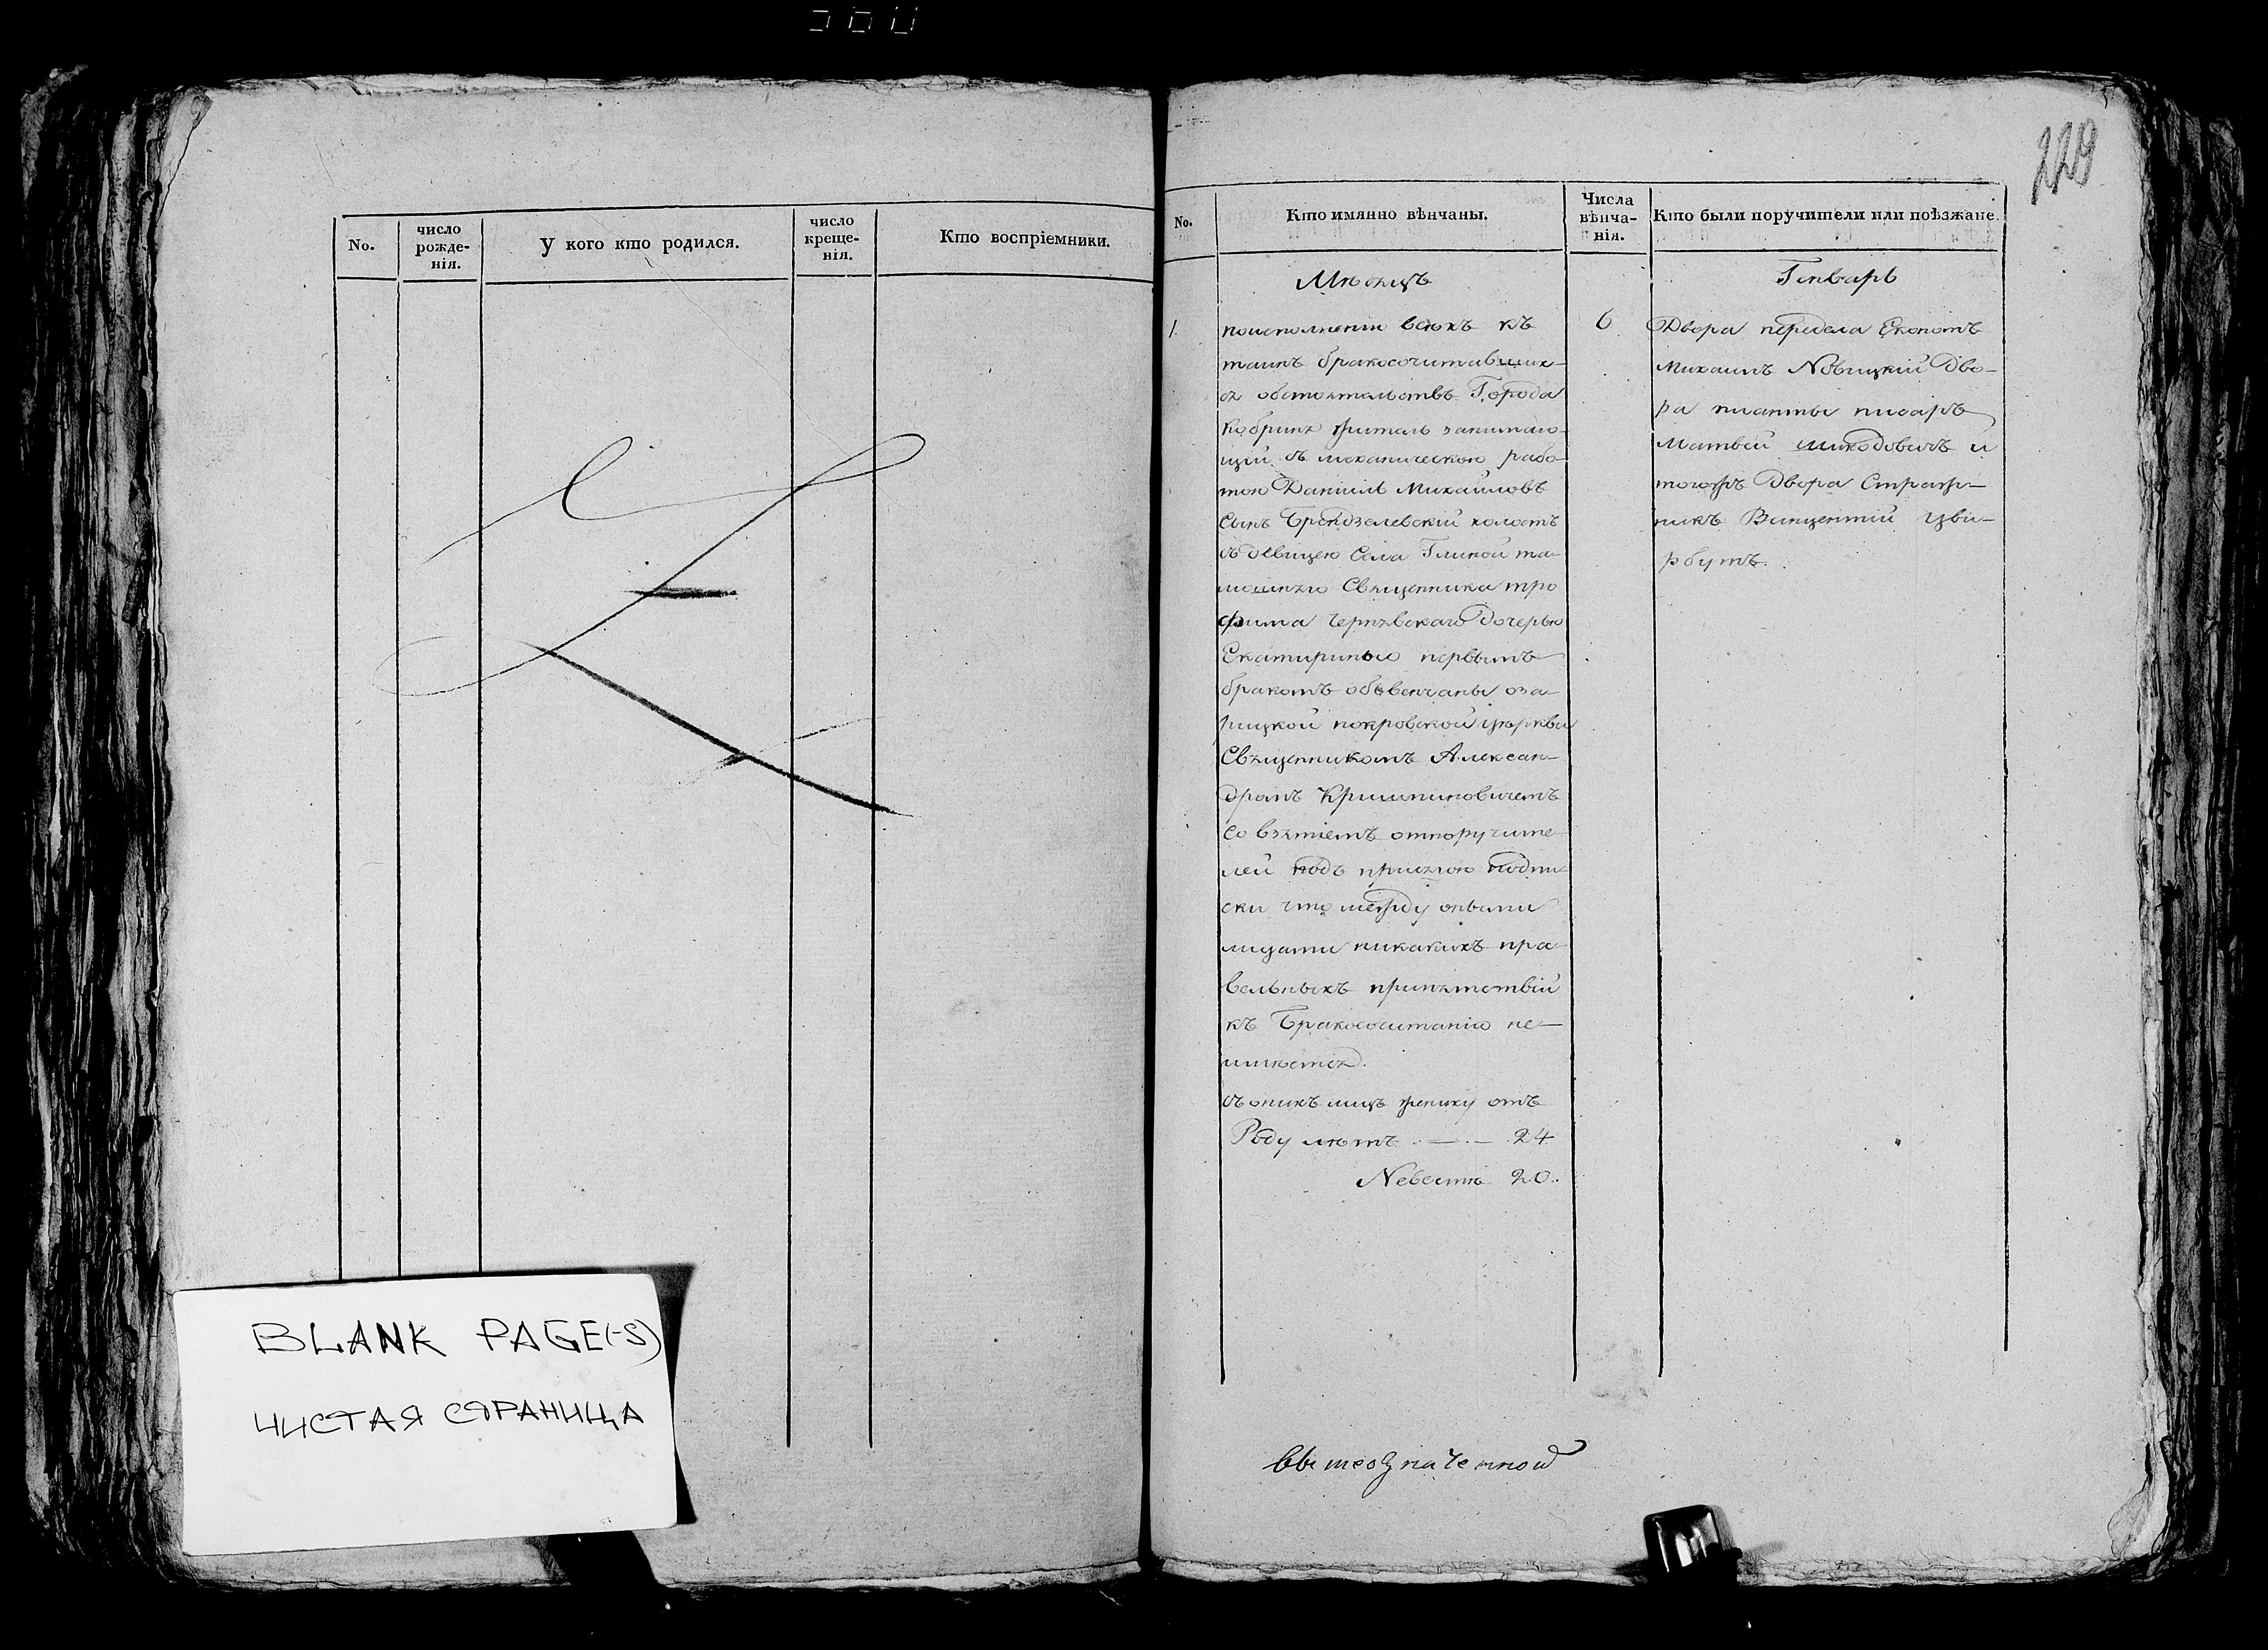 No.
число рожде-нія.
У кого кто родился.
число креще-нія.
Кто воспріемники.
BLANK PAGE(-S)
ЧИСТАЯ СТРАНИЦА
229
No.
Кто имянно вѣнчаны.
Числа вѣнча-нія.
Кто были поручители или поѣзжане.
Мѣсяцъ
Генварь
1.
поисполнении всѣхъ къ
таинъ бракосочитавших
ся обстоятельствъ Города
Кобриня житель занимаю-
щій съ механическою рабо-
тою Данииль Михайловъ
Сынъ Брендзелевскій холостъ
съ девицею Села Глиной та-
мошняго Священника тро
фима Чернявскаго Дочерью
Екатириною первымъ
бракомъ обвенчаны оза-
рицкой покровской церкви
Священникомъ Алексан-
дромъ
Со взятіемъ отпоручите-
лей подъ присягою подпи-
ски что между оными
лицами никакихъ пра-
вельныхъ припятствій
къ Бракосочитанію не-
имѣется.
съ онихъ лицъ жениху отъ
Роду лѣтъ — 24
Невестѣ 20.
6
Двора передела Економъ
михаилъ Новицкій Дво-
ра пианты писаръ
Матвей и
тогожъ Двора Страж-
никъ Винцентій Цви-
рбутъ.
вышеозначенной